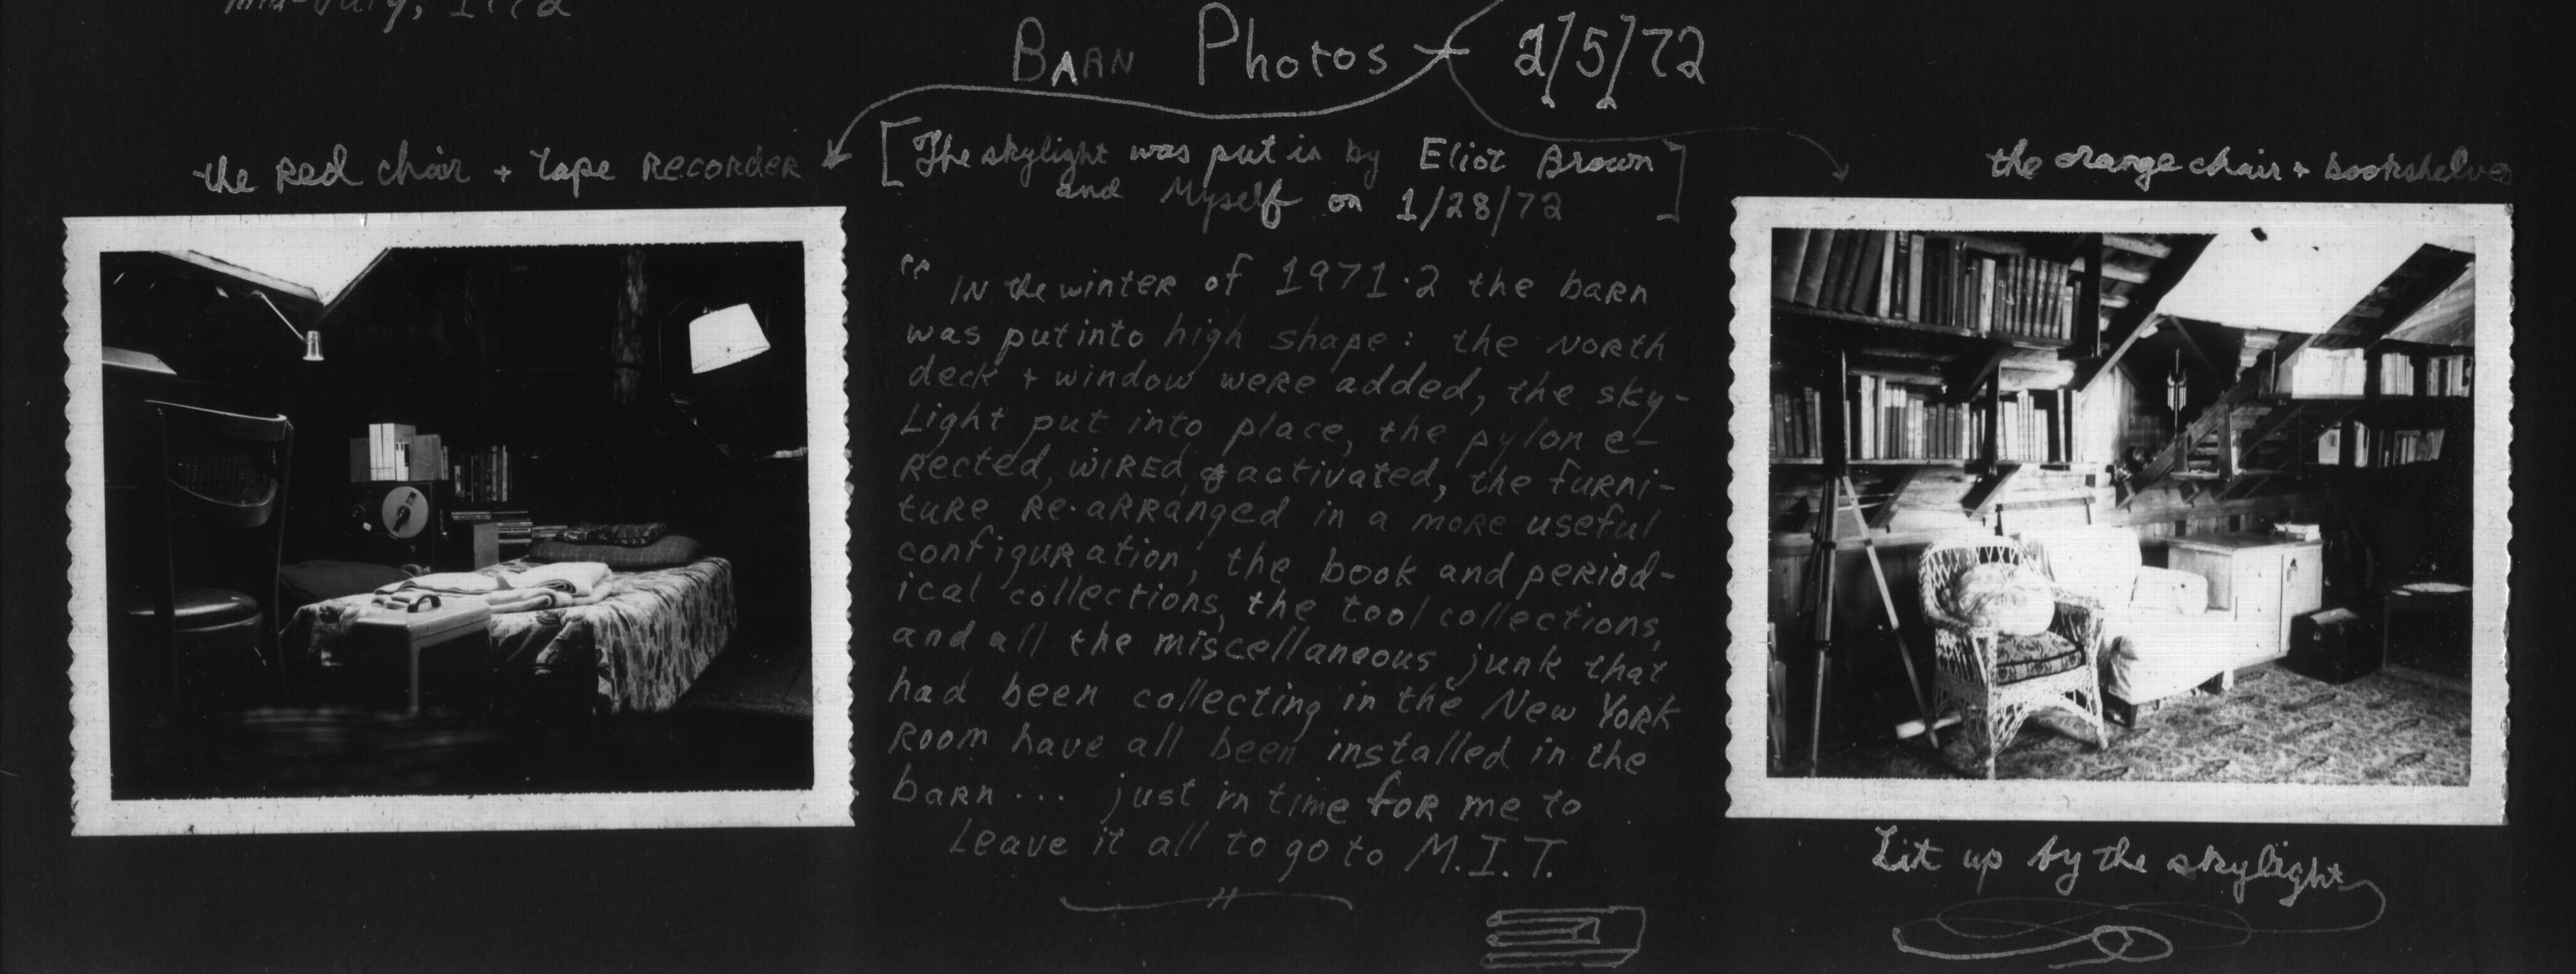 mid-July, 1972
Barn Photos 2/5/72
the Red chair + tape recorder
[The skylight was put in by Eliot Brown
and Myself on 1/28/72]
the orange chair + bookshelves
"In the winter of 1971·2 the barn
was put into high shape: the north
deck + window were added, the sky-
Light put into place, the pylon e-
rected, wired, & activated, the furni-
ture re·arranged in a more useful
configuration, the book and period-
ical collections, the tool collections,
and all the miscellaneous junk that
had been collecting in the New York
Room have all been installed in the
barn... just in time for me to
Leave it all to go to M.I.T.
"
Lit up by the skylight